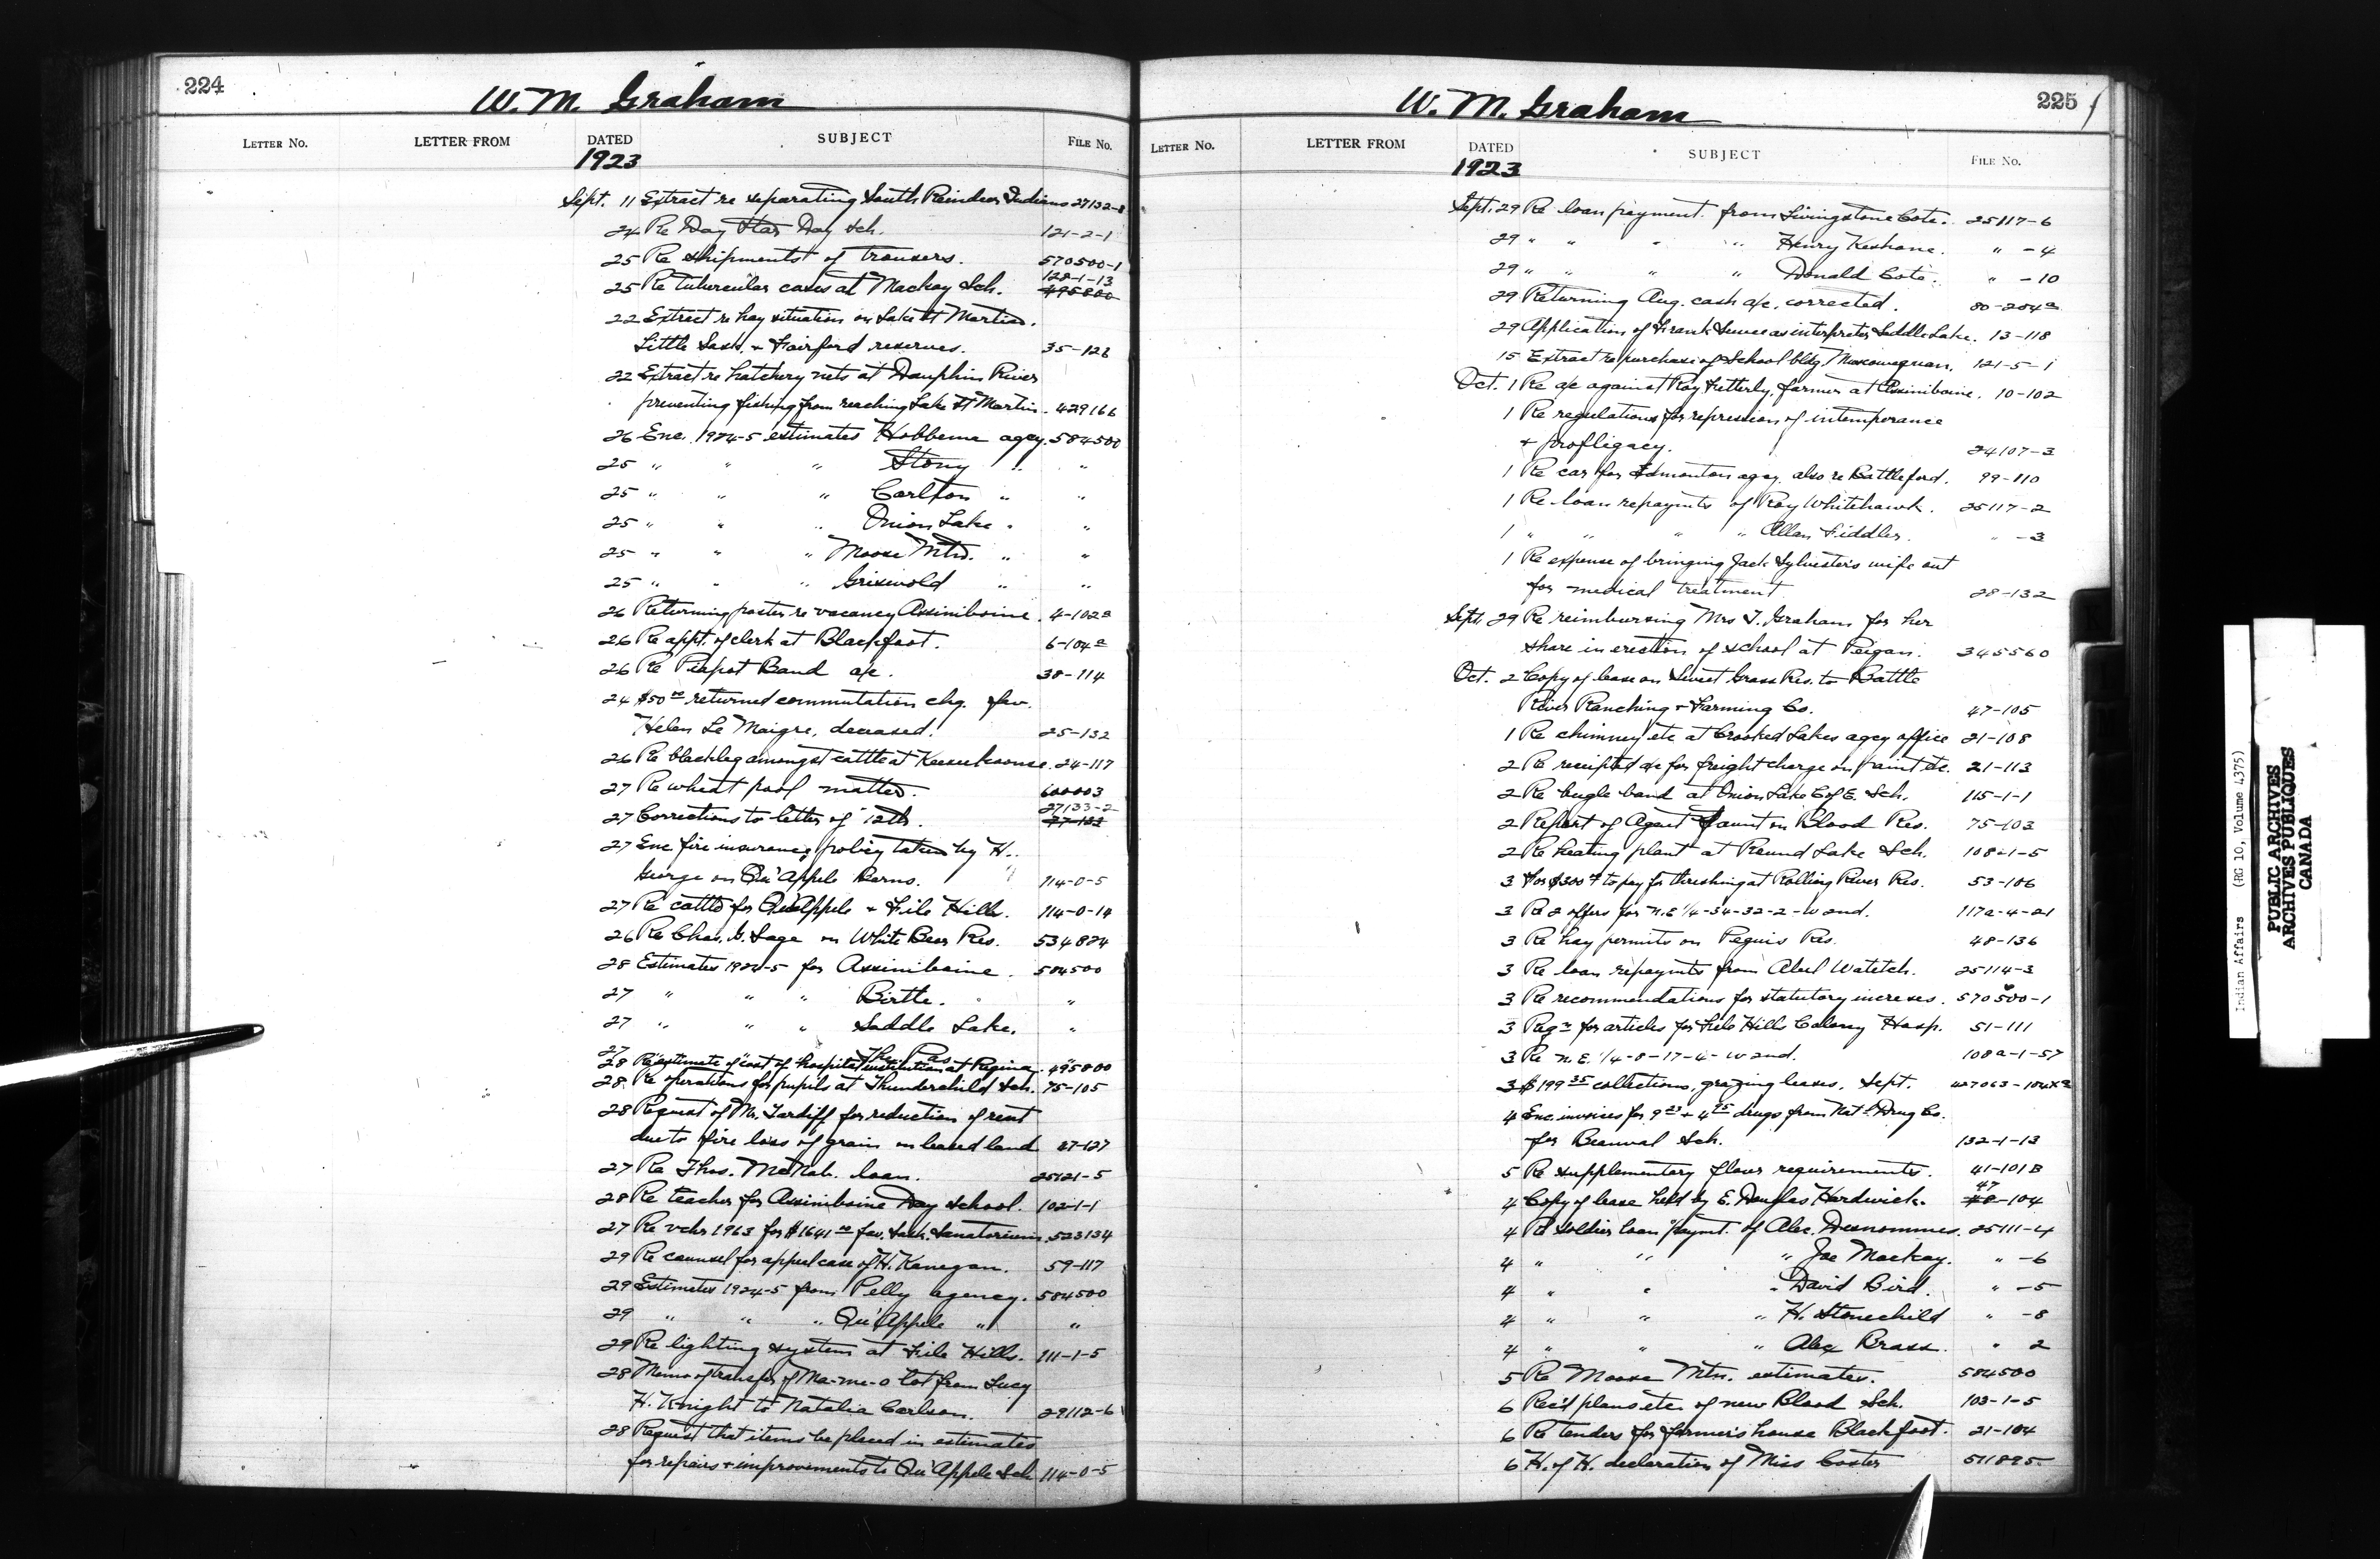 224
W. M. Graham
LETTER NO. LETTER FROM DATED SUBJECT FILE NO.
1923
Sept. 11 Extract re separating South Reindeer Indians 27132-8
24 Re Day Star Day Sch. 121-2-1
25 Re shipments of trousers. 570500-1
128-1-13
25 Re tubercular cases at Mackay Sch. 495800
22 Extract re hay situation on Lake St Martin.
Little Sask. + Fairford reserves. 35-126
22 Extract re hatchery nets at Dauphin River
preventing fishing from reaching Lake St Martin. 429166
26 Enc. 1924-5 estimates Hobbema agcy. 584500
25 " " " Stony " "
25 " " " Carlton " "
25 " " " Onion Lake " "
25 " " " Moose Mtn. " "
25 " " " Griswold " "
26 Returning poster re vacancy Assiniboine. 4-102a
26 Re appt. of clerk at Blackfoot. 6-104a
26 Re Piapot Band a/c. 38-114
24 $50.00 returned commutation chq. fav.
Helen Le Maigre, deceased. 25-132
26 Re blackleg amongst cattle at Keeseekoose. 24-117
27 Re wheat pool matter. 600003
27133-2
27 Corrections to letter of 12th. 27-133
27 Enc fire insurance policy taken by H.
George on Qu'Appele Barns. 114-0-5
27 Re cattle for Qu'Appele + File Hills. 114-0-14
26 Re Chas. G. Sage on White Bear Res. 534874
28 Estimates 1924-5 for Assiniboine. 584500
27 " " " Birtle. "
27 " " " Saddle Lake. "
27 " " " The Pas "
28 Re estimate of cost of hospital institution at Regina. 495800
28 Re operations for pupils at Thunderchild Sch. 75-105
28 Request of Mr. Tardiff for reduction of rent
due to fire loss of grain on leased land 27-127
27 Re Thos. McNab. loan. 25121-5
28 Re teacher for Assiniboine Day School. 102-1-1
27 Re vchr 1963 for $1641.00 fav. Sask. Sanatorium. 523134
29 Re counsel for appeal case of H. Kanegan. 59-117
29 Estimates 1924-5 from Pelly agency. 584500
29 " " " Qu'Appele " "
29 Re lighting system at File Hills. 111-1-5
28 Memo of transfer of Ma-me-o lot from Lucy
H. Knight to Natalia Carlson. 29112-6
28 Request that items be placed in estimates
for repairs + improvements to Qu'Appele Sch 114-0-5
225
W. M. Graham
LETTER NO. LETTER FROM DATED SUBJECT FILE NO.
1923
Sept. 29 Re loan payment from Livingstone Cote. 25117-6
29 " " " " Henry Keshane. " -4
29 " " " " Donald Cote. " -10
29 Returning Aug. cash a/c. corrected. 80-254a
29 Application of Frank as interpreter Saddle Lake. 13-118
15 Extract re purchase of School bldg Muscowequan. 121-5-1
Oct. 1 Re a/c against Roy Fetterly, farmer at Assiniboine. 10-102
1 Re regulations for repression of intemperance
+ profligacy. 24107-3
1 Re car for Edmonton agcy. also re Battleford. 99-110
1 Re loan repaymts of Roy Whitehawk. 25117-2
1 " " " " Allan Fiddler. " -3
1 Re expense of bringing Jack Sylvester's wife out
for medical treatment 28-132
Sept. 29 Re reimbursing Mrs T. Graham for her
share in erection of school at Peigan. 345560
Oct. 2 Copy of lease on Sweet Grass Res. to Battle
River Ranching + Farming Co. 47-105
1 Re chimney etc at Crooked Lakes agcy office 21-108
2 Re receipted a/c for freight charge on paint etc. 21-113
2 Re bugle band at Onion Lake C of E. Sch. 115-1-1
2 Report of Agent Faunt on Blood Res. 75-103
2 Re heating plant at Round Lake Sch. 108-1-5
3 For $300.00 to pay for threshing at Rolling River Res. 53-106
3 Re 2 offers for N.E 1/4-34-32-2-W 2nd. 117a-4-21
3 Re hay permits on Peguis Res. 48-136
3 Re loan repaymts from Abel Watetch. 25114-3
3 Re recommendations for statutory increases. 570500-1
3 Reqn for articles for File Hills Colony Hosp. 51-111
3 Re N.E. 1/4-8-17-4-W 2nd. 108a-1-57
3 $199.35 collections, grazing leases, Sept. 427063-104x2
4 Enc. invoices for 9.23 + 4.95 drugs from Nat'l Drug Co.
for Beauval Sch. 132-1-13
5 Re supplementary flour requirements. 41-101B
47
4 Copy of lease held by E. Douglas Hardwick. 48-104
4 Re soldier loan paymt. of Alec. Desnommes. 25111-4
4 " " " Joe Mackay. " -6
4 " " " David Bird. " -5
4 " " " H. Stonechild " -8
4 " " " Alex Brass. " 2
5 Re Moose Mtn. estimates. 584500
6 Rec'd plans etc. of new Blood Sch. 103-1-5
6 Re tenders for farmer's house Blackfoot. 21-104
6 H. of H. declaration of Miss Coster 511895
Indian Affairs (RG 10, Volume 4375)
PUBLIC ARCHIVES
ARCHIVES PUBLIQUES
CANADA